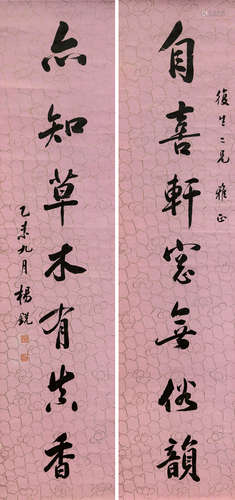 復生二兄 雅正
自喜軒窓無俗韻
亦知草木有真香
乙未九月 楊銳